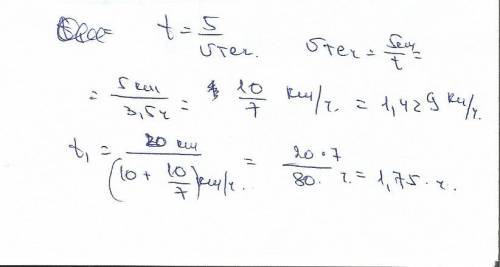 t = S / Uтеч. Uтеч = Sсп / t =
= 5 км / 3,5 ч = 10 / 7 км/ч. = 1,429 км/ч.
t₁ = 20 км / (10 + 10/7) км/ч. = 20 · 7 / 80 · ч. = 1,75 · ч.